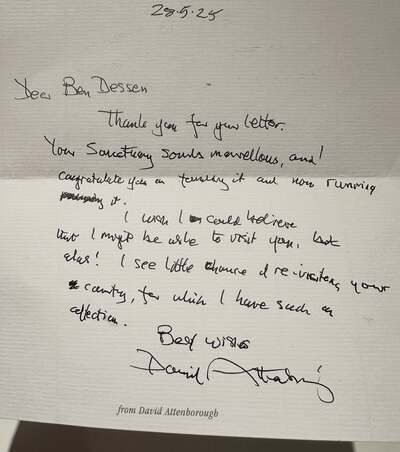 28.5.25
Dear Ben Dessen
Thank you for your letter.
Your Sanctuary sounds marvellous, and I
congratulate you on founding it and now running
it.
I wish I could believe
that I might be able to visit you, but
alas! I see little chance of re-visiting your
country, for which I have such an
affection.
Best wishes
David Attenborough
from David Attenborough